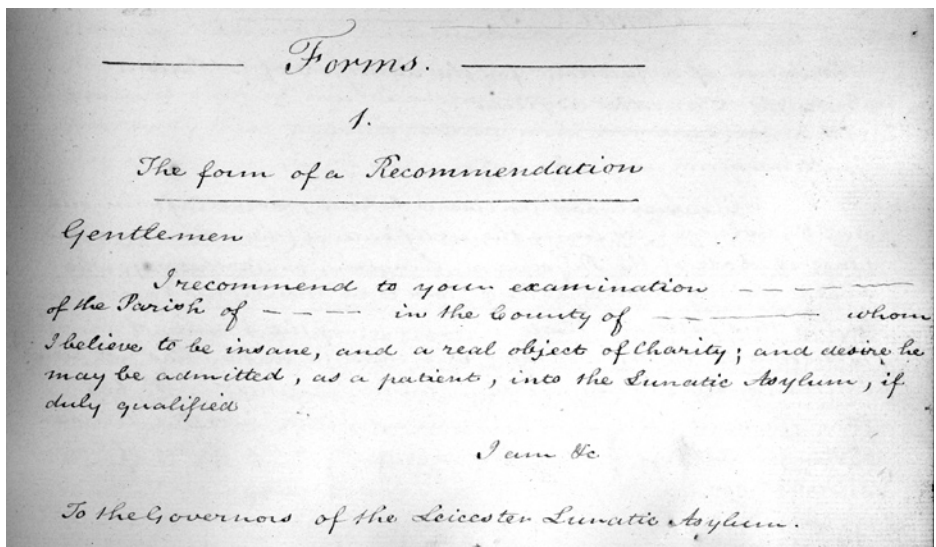 Forms.
1.
The form of a Recommendation
Gentlemen
I recommend to your examination – – – – – –
of the Parish of – – – – in the County of – – – – – – whom
I believe to be insane, and a real object of Charity; and desire he
may be admitted, as a patient, into the Lunatic Asylum, if
duly qualified
I am &c
To the Governors of the Leicester Lunatic Asylum.